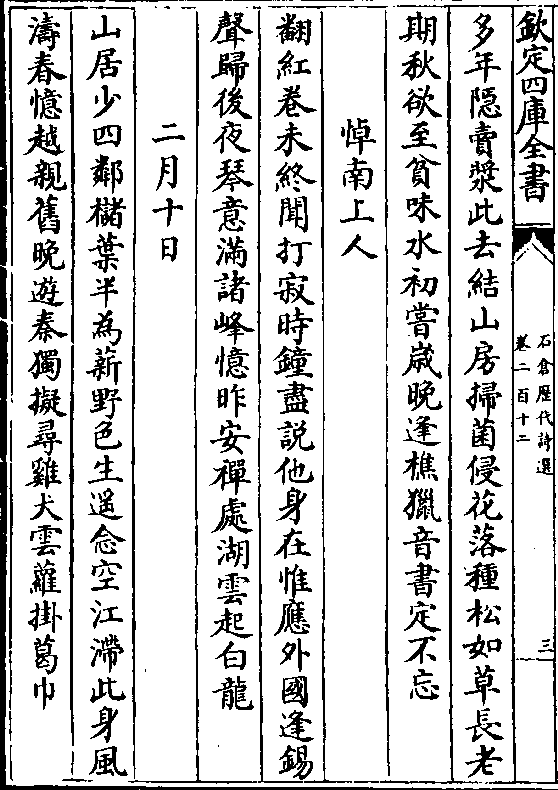 欽定四庫全書
石倉歷代詩選
卷二百十二
三
多年隠賣漿此去結山房掃菌侵花落種松如草長老
期秋欲至貧味水初嘗嵗晚逢樵獵音書定不忘
悼南上人
翻紅卷未終聞打寂時鐘盡説他身在惟應外國逢錫
聲歸後夜琴意滿諸峰憶昨安禪處湖雲起白龍
二月十日
山居少四鄰櫧葉半為薪野色生遥念空江滯此身風
濤春憶越親舊晚遊秦獨擬尋雞犬雲蘿掛葛巾